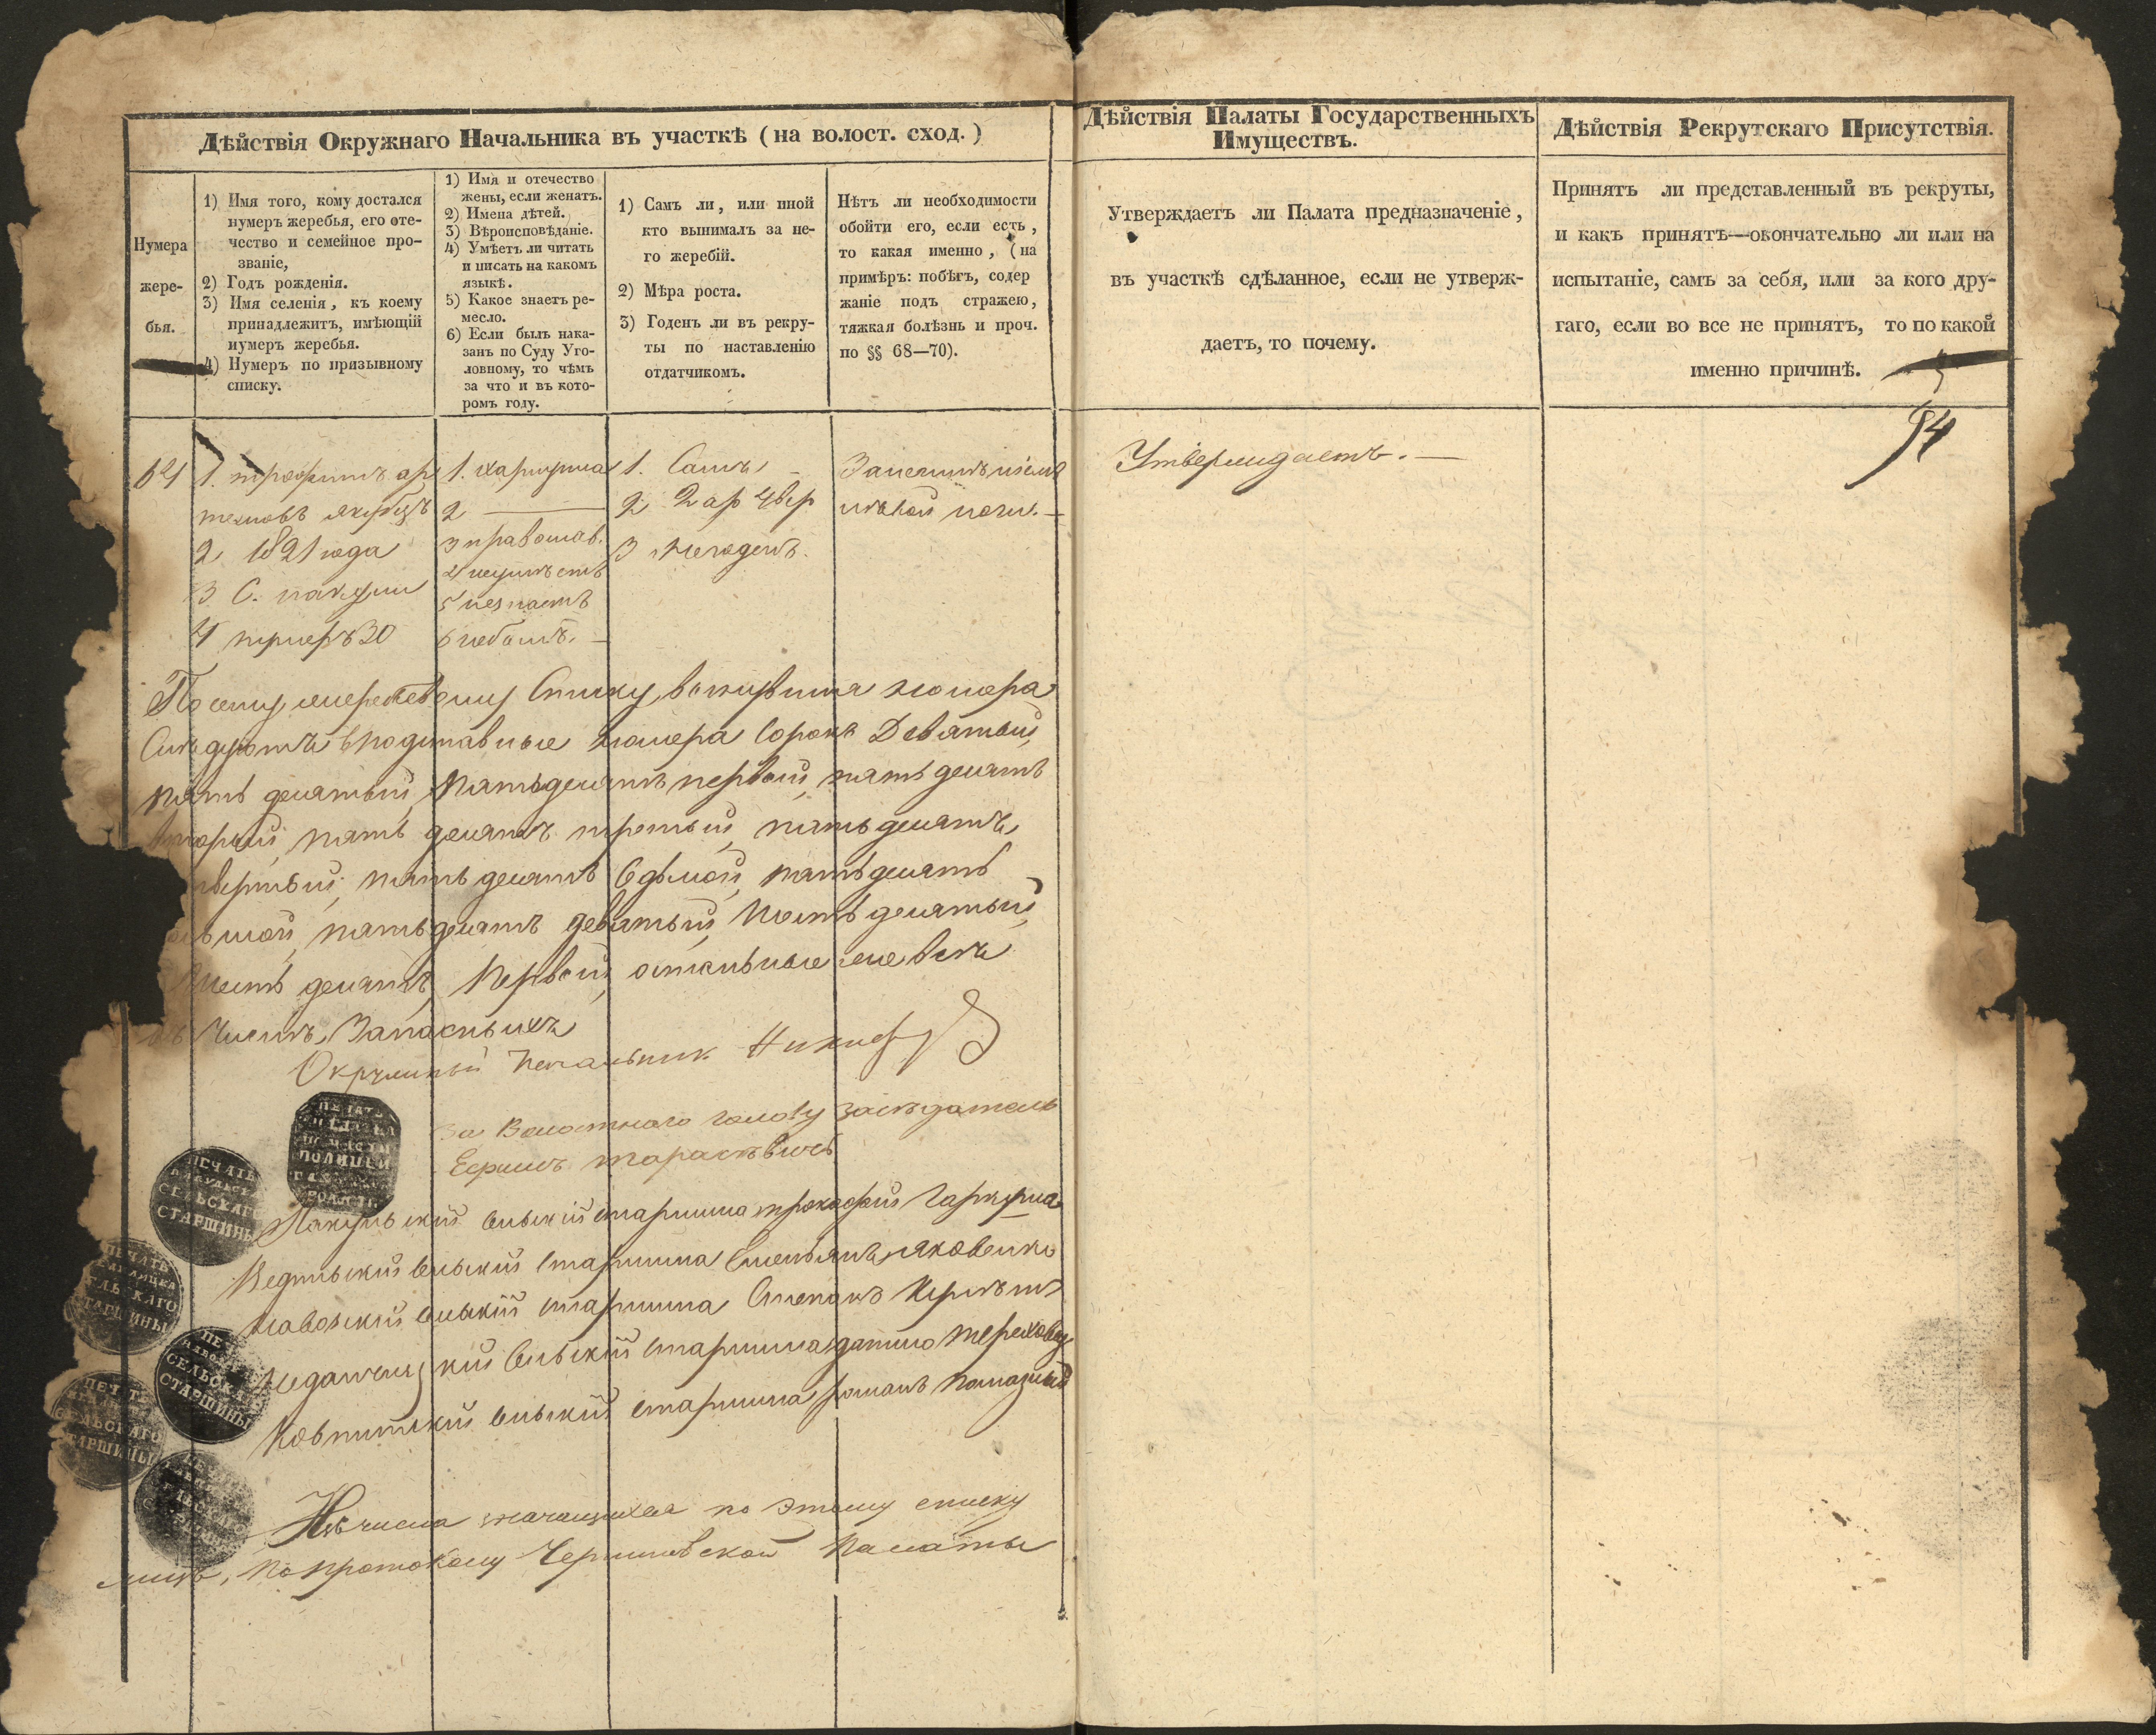 Дѣйствія Окружнаго Начальника въ участкѣ (на волост. сход.)
Нумера
жере-
бья.
1) Имя того, кому достался
нумеръ жеребья, его оте-
чество и семейное про-
званіе,
2) Годъ рожденія.
3) Имя селенія, къ коему
принадлежитъ, имѣющій
нумеръ жеребья.
4) Нумеръ по призывному
списку.
1) Имя и отечество
жены, если женатъ.
2) Имена дѣтей.
3) Вѣроисповѣданіе.
4) Умѣетъ ли читать
и писать на какомъ
языкѣ.
5) Какое знаетъ ре-
месло.
6) Если былъ нака-
занъ по Суду Уго-
ловному, то чѣмъ
за что и въ кото-
ромъ году.
1) Самъ ли, или иной
кто вынималъ за не-
го жеребій.
2) Мѣра роста.
3) Годенъ ли въ рекру-
ты по наставленію
отдатчикомъ.
Нѣтъ ли необходимости
обойти его, если есть,
то какая именно, (на
примѣръ: побѣгъ, содер
жаніе подъ стражею,
тяжкая болѣзнь и проч.
по §§ 68—70).
Дѣйствія Палаты Государственныхъ
Имуществъ.
Утверждаетъ ли Палата предназначеніе,
въ участкѣ сдѣланное, если не утверж-
даетъ, то почему.
Дѣйствія Рекрутскаго Присутствія.
Принятъ ли представленный въ рекруты,
и какъ принятъ—окончательно ли или на
испытаніе, самъ за себя, или за кого дру-
гаго, если во все не принятъ, то по какой
именно причинѣ.
94
1. трофимъ ар
темовъ якубецъ
2 1821 года
3 С. пакули
4 нумеръ 30
1.
2 —
3 православ.
4 неумѣетъ
5 незнаетъ
6 небылъ. —
1. Самъ
2 2 ар 4 вер
3 негоденъ.
Утверждаетъ. —
По сему жеребьевому Списку, нюмера
Слѣдуютъ вподставные нюмера Сорокъ Девятый,
пять десятый, пятьдесятъ первый, пять десятъ
вторый, пять десятъ третый, пять десятъ
твертый, пять десятъ Седьмой, пятьдесятъ
ьмой, пятьдесятъ девятый, Шесть десятый,
Шесть десятъ Первый, остальные же всѣ
въ Числѣ Запасныхъ
Окружный Начальник
За Волостнаго голову засѣдатель
Ефимъ
Пакульскій сельскій старшина прокофий Гаркуша
сельский Старшина Емельянъ яковенко
сельскій старшина Степанъ
сельскій старшина данило тереховец
сельскій старшина романъ
ПЕЧАТЬ
ПОЛИЦЕЙ
ПЕЧАТЬ
СЕЛЬСКАГО
СТАРШИНЫ
ПЕЧАТЬ
СЕЛЬСКАГО
СТАРШИНЫ
СЕЛЬСКАГО
СТАРШИНЫ
ПЕЧАТЬ
СЕЛЬСКАГО
СТАРШИНЫ
Изъ числа значащихся по этому списку
лицъ, по протоколу Черниговской Палаты